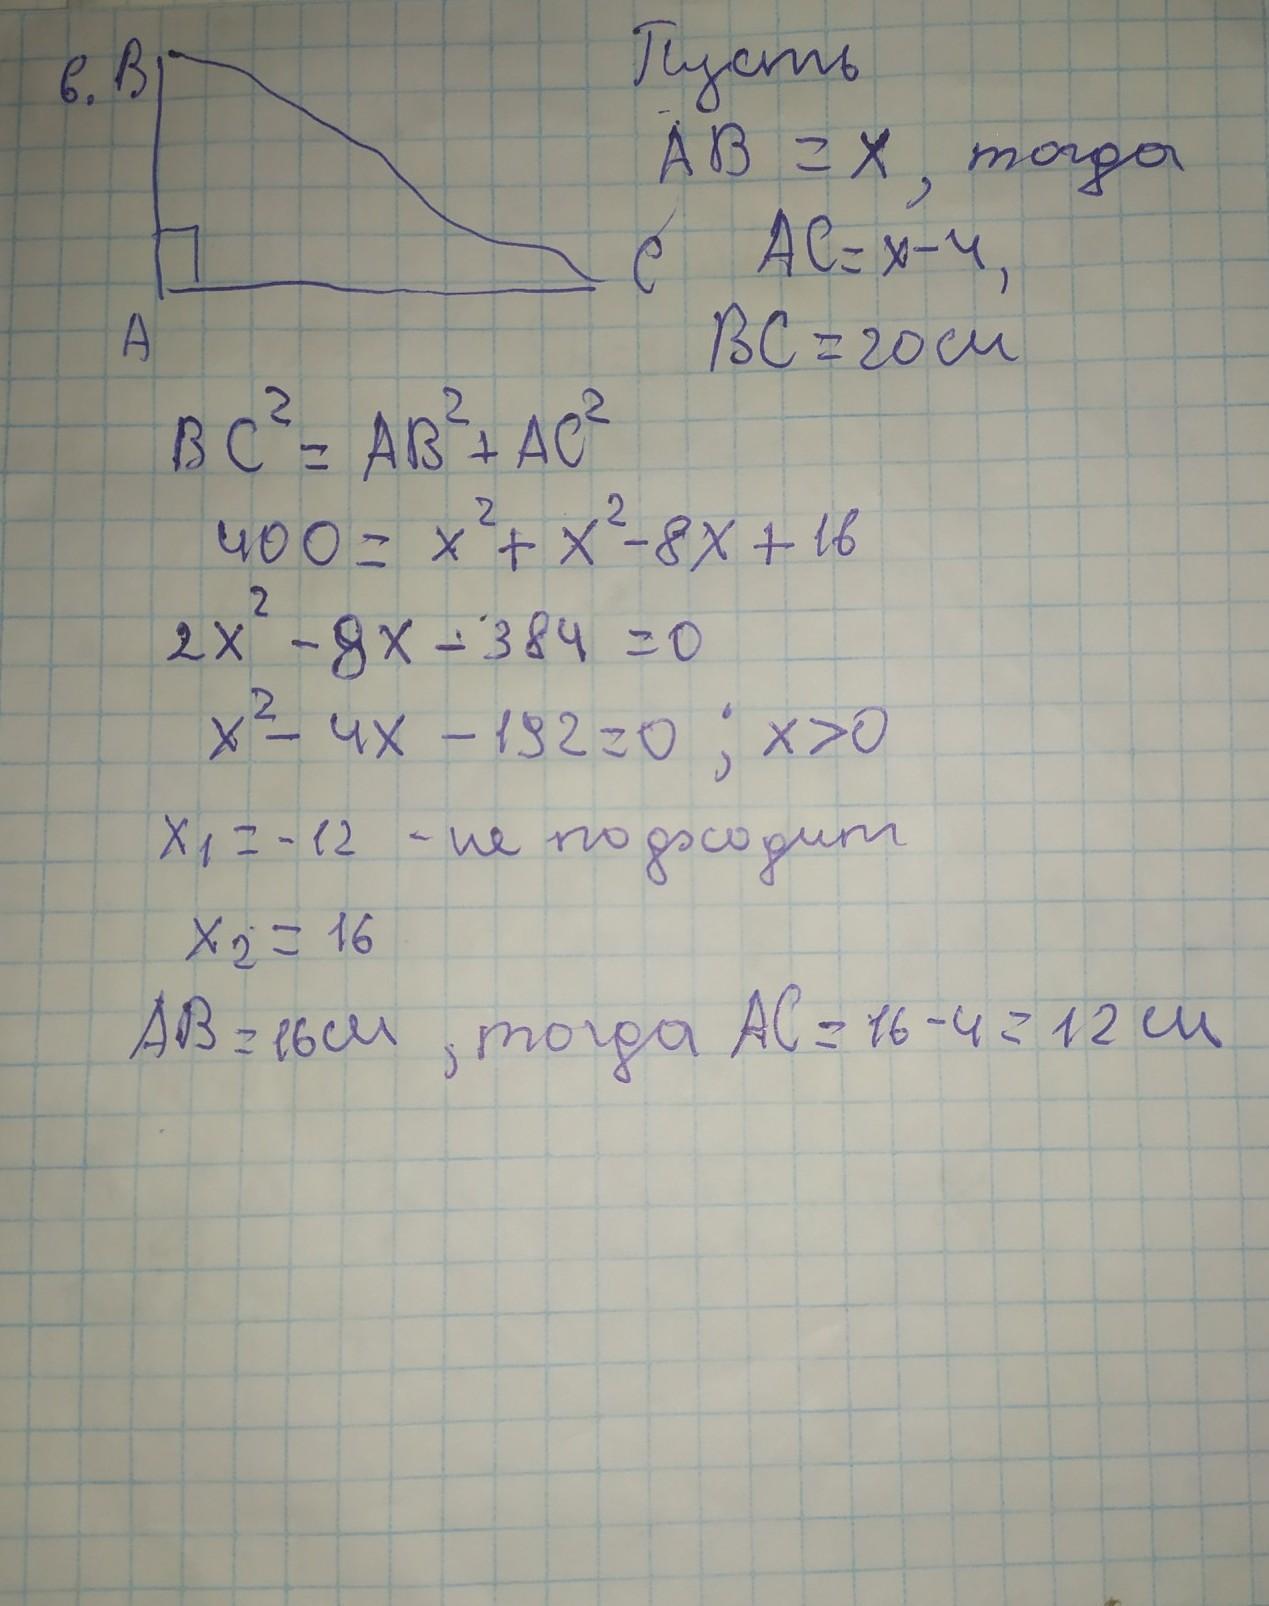 6. B
Пусть
AB = x, тогда
C
AC = x-4,
A
BC = 20 см
BC² = AB² + AC²
400 = x² + x² - 8x + 16
2x² - 8x - 384 = 0
x² - 4x - 192 = 0 ; x > 0
x₁ = -12 - не подходит
x₂ = 16
AB = 16 см, тогда AC = 16 - 4 = 12 см